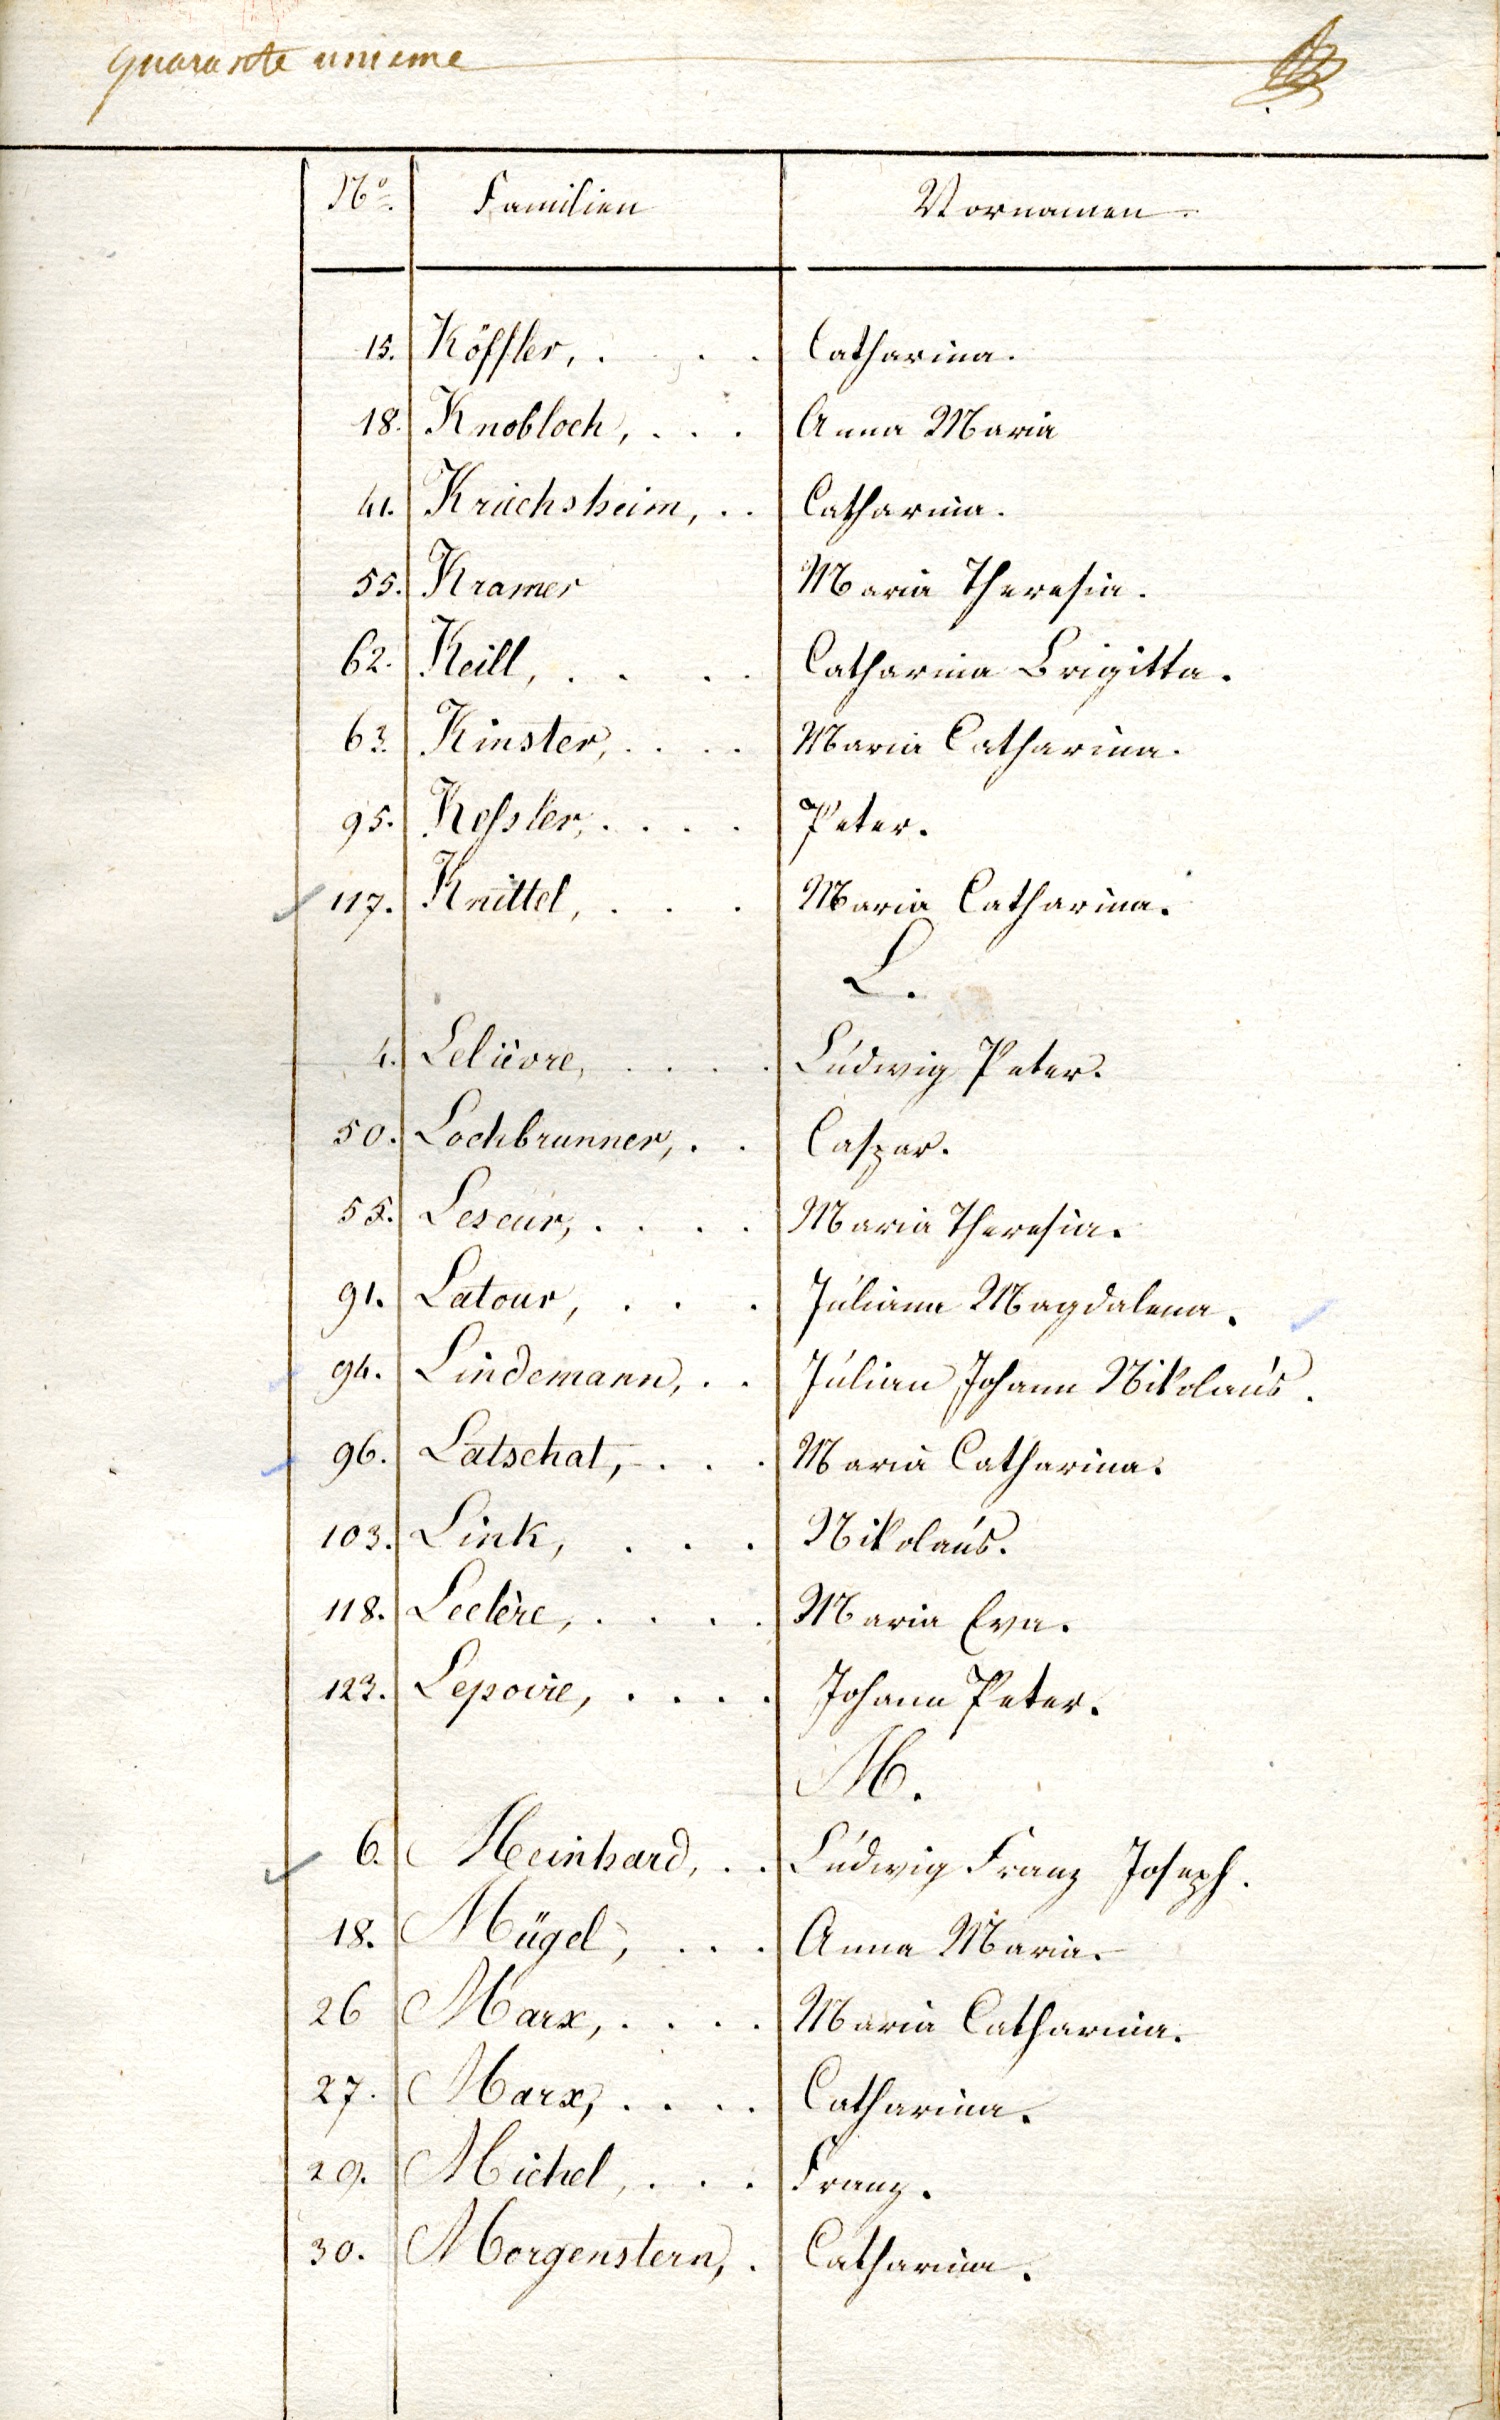 quarante unieme
No. Familien Vornamen
15. Köffler, . . . Catharina.
18. Knobloch, . . . Anna Maria
41. Krüchsheim, . . Catharina.
55. Kramer Maria Theresia.
62. Keill, . . . . Catharina Brigitta.
63. Kinster, . . . . Maria Catharina.
95. Keſsler, . . . . Peter.
117. Knittel, . . . Maria Catharina.
L.
4. Leliévre, . . . . Ludwig Peter.
50. Lochbrunner, . . Caspar.
55. Leseur, . . . . Maria Theresia.
91. Latour, . . . Juliana Magdalena.
94. Lindemann, . . Julian Johann Nikolaus.
96. Latschat, . . . Maria Catharina.
103. Link, . . . Nikolaus.
118. Leclère, . . . . Maria Eva.
123. Lepoire, . . . . Johann Peter.
M.
6. Meinhard, . . Ludwig Franz Joseph.
18. Mügel, . . . Anna Maria.
26 Marx, . . . . Maria Catharina.
27. Marx, . . . . Catharina.
29. Michel, . . . Franz.
30. Morgenstern, . Catharina.